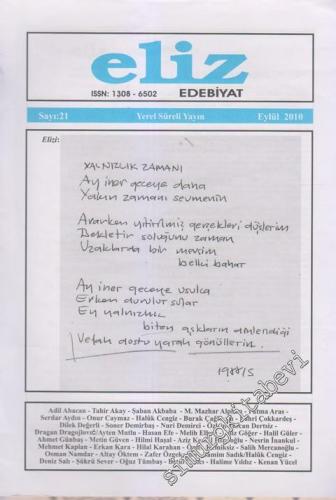 eliz
ISSN: 1308 - 6502 EDEBİYAT
Sayı:21 Yerel Süreli Yayın Eylül 2010
Elizi:
YALNIZLIK ZAMANI
Ay iner geceye daha
Yakın zamanı sevmenin
Ararken yitirilmiş gerçekleri düşlerim
Bekletir soluğunu zaman
Uzaklarda bir mevsim
belki bahar
Ay iner geceye usulca
Erken durulur sular
Ey yalnızlık
biten aşkların dinlendiği
Vefalı dostu yaralı gönüllerin.
1988/5
Adil Abacan - Tahir Akay - Şaban Akbaba - M. Mazhar Fatma Aras -
Serdar Aydın - Onur Caymaz - Haluk Cengiz - Burak Çokkardeş -
Dilek Değerli - Soner Demirbaş - Nuri Demirci - Dertsiz -
Dragan Dragojlovç/Ayten Mutlu - Hasan Efe - Melih Göğer - Halil Güler -
Ahmet Günbaş - Metin Güven - Hilmi Haşal - Aziz - Nesrin İnankul -
Mehmet Kaplan - Erkan Kara - Hilal Karahan - Salih Mercanoğlu -
Osman Namdar - Altay Öktem - Zafer Sadık/Haluk Cengiz -
Deniz Salı - Şükrü Sever - Oğuz Tümbaş - Halime Yıldız - Kenan Yücel
simurgkitabevi